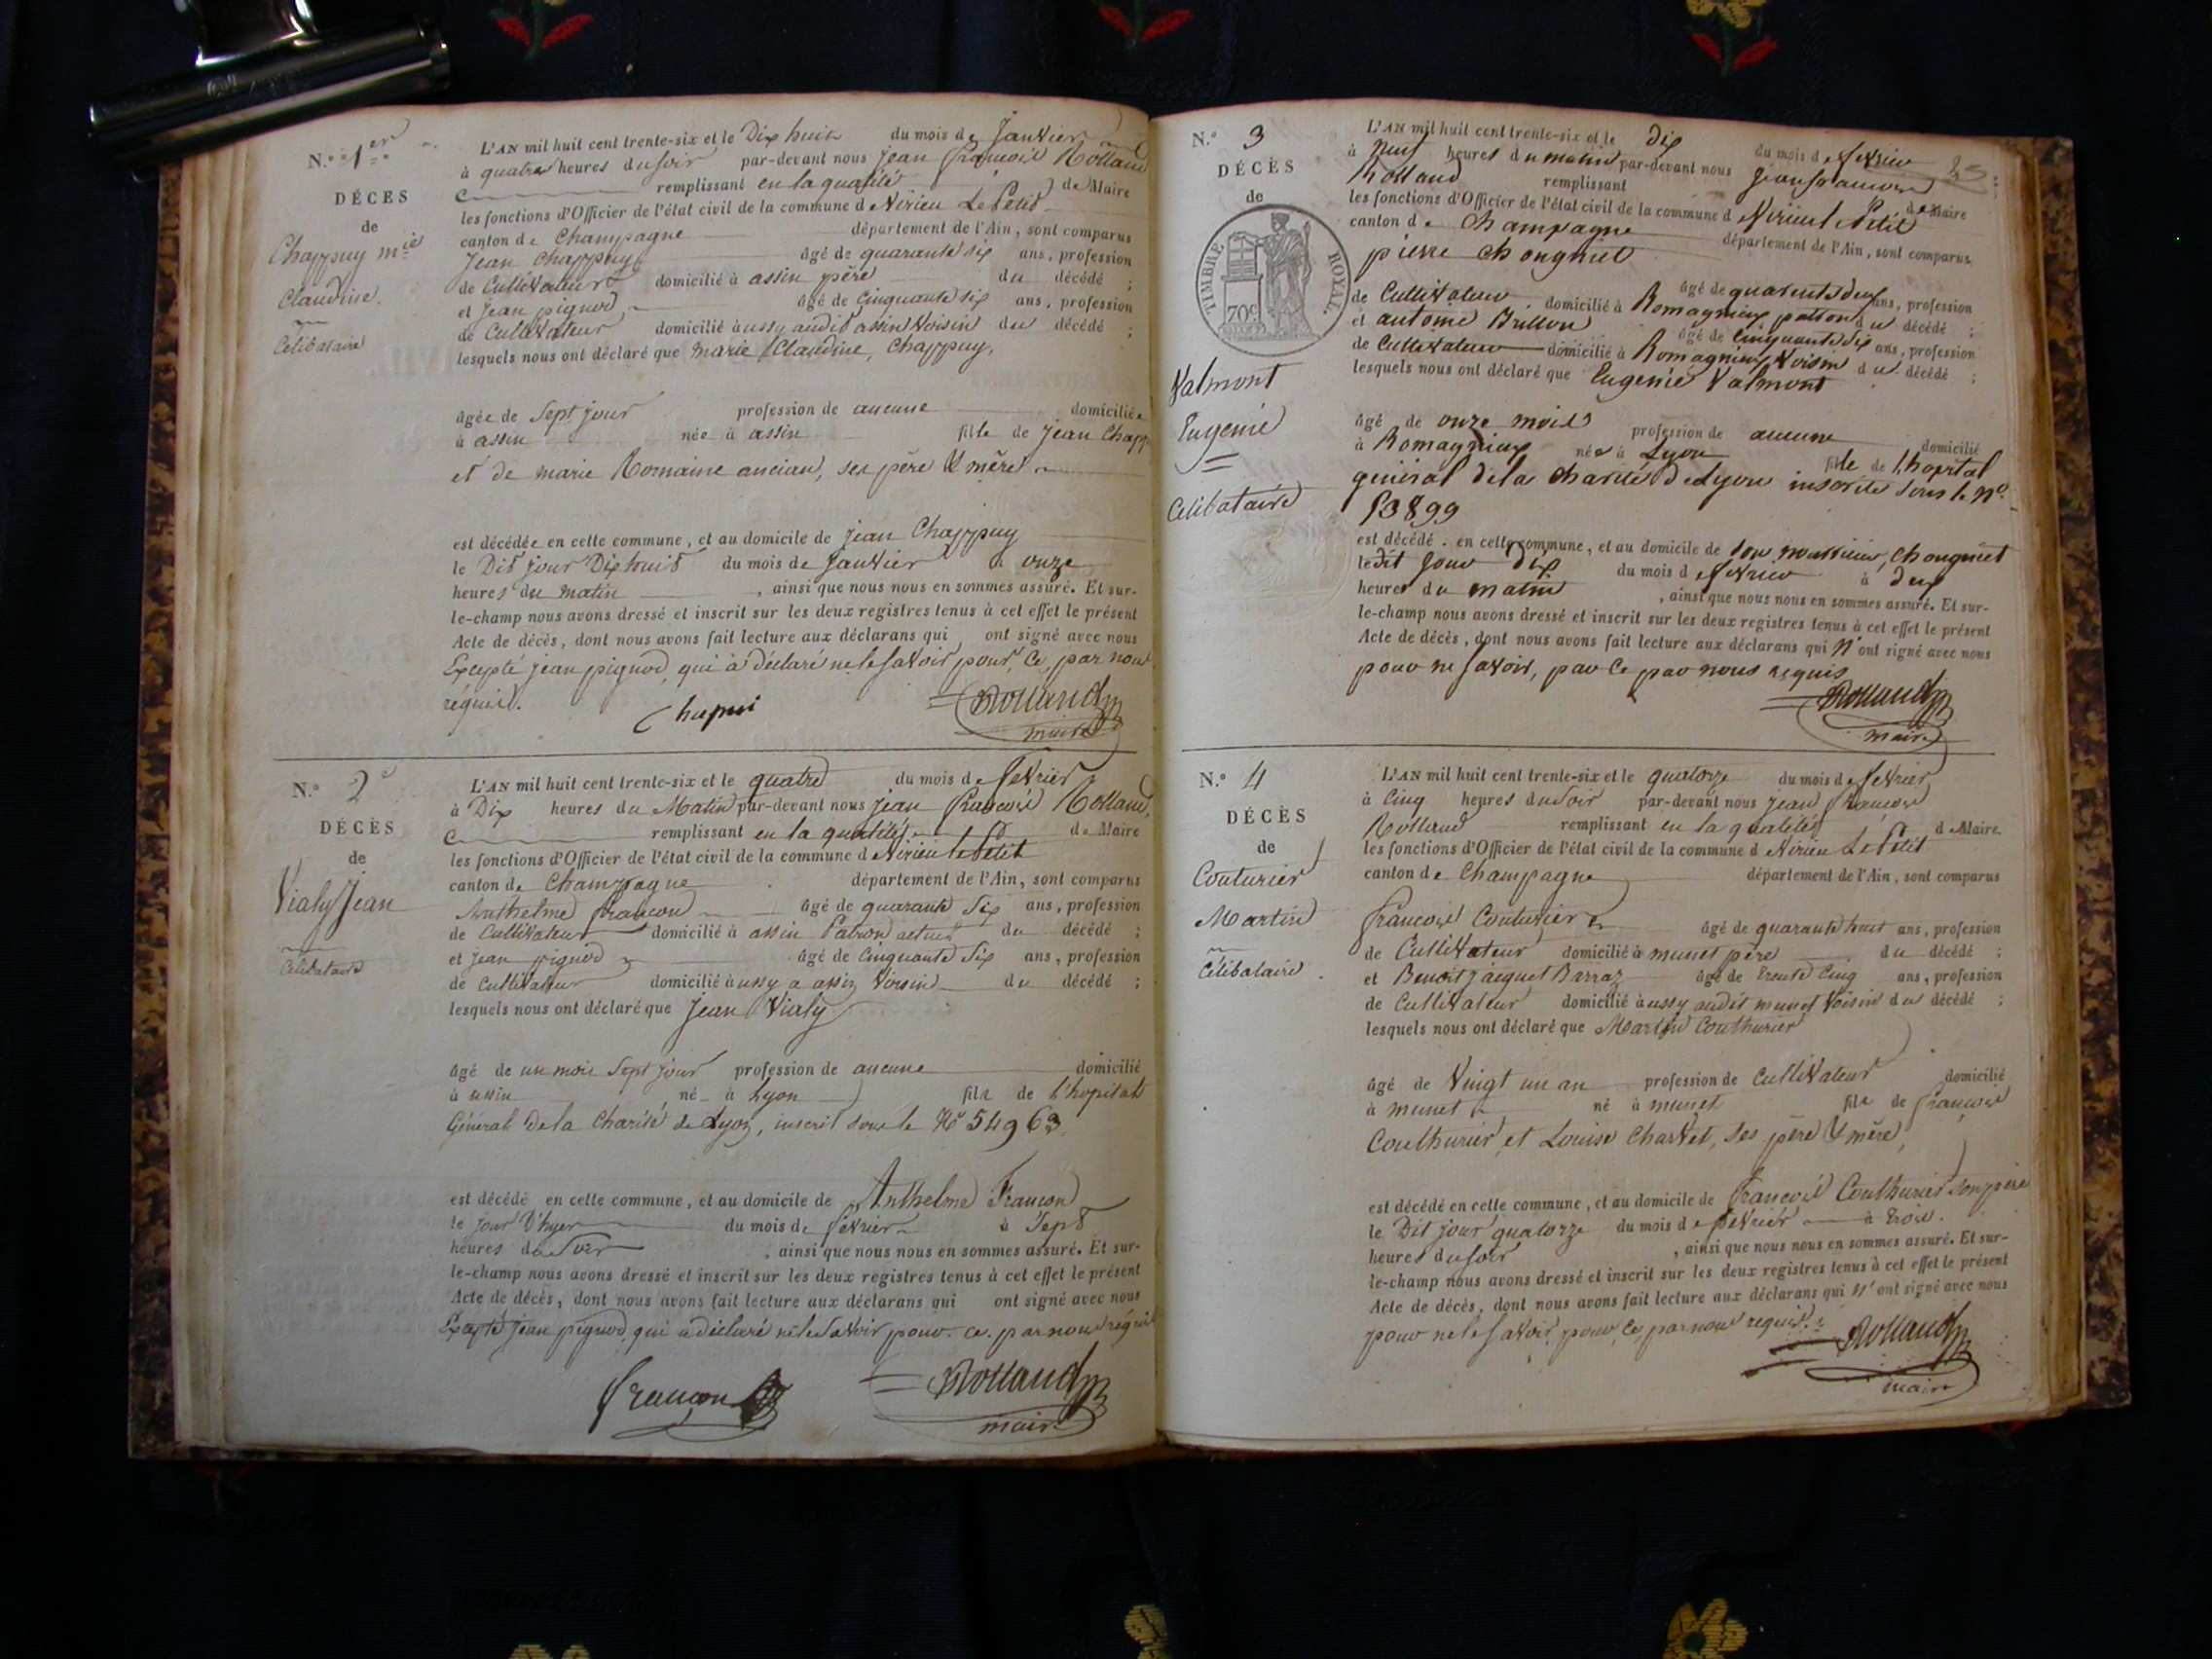 N.° 1er
DÉCÈS
de
Chappuy mie
Claudine.
Célibataire
L'AN mil huit cent trente-six et le Dix huit du mois de Janvier
à quatre heures du soir par-devant nous Jean François Rolland
remplissant en la qualité de Maire
les fonctions d'Officier de l'état civil de la commune d Virieu Le Petit
canton de Champagne département de l'Ain, sont comparus
Jean Chappuy âgé de quarante six ans, profession
de Cultivateur domicilié à assin père du décédé ;
et Jean pignod, âgé de Cinquante six ans, profession
de Cultivateur domicilié aussy audit assin Voisin du décédé ;
lesquels nous ont déclaré que marie Claudine, Chappuy,
âgée de Sept jour profession de aucune domiciliée
à assin née à assin fille de Jean Chapp
et de marie Romaine ancian, ses père & mère
est décédée en cette commune, et au domicile de Jean Chappuy
le Dit jour Dix huit du mois de Janvier à onze
heures du matin , ainsi que nous nous en sommes assuré. Et sur-
le-champ nous avons dressé et inscrit sur les deux registres tenus à cet effet le présent
Acte de décès, dont nous avons fait lecture aux déclarans qui ont signé avec nous
Excepté jean pignod, qui à déclaré ne le savoir pour ce par nous
réquis.
Chapui Rolland
maire
N.° 2
DÉCÈS
de
Vialy Jean
Célibataire
L'AN mil huit cent trente-six et le quatre du mois de fevrier
à Dix heures du Matin par-devant nous jean François Rolland,
remplissant en la qualité de Maire
les fonctions d'Officier de l'état civil de la commune d Virieu le Petit
canton de Champagne département de l'Ain, sont comparus
Anthelme françon âgé de quarante Six ans, profession
de Cultivateur domicilié à assin Patron du décédé ;
et Jean pignod âgé de Cinquante Six ans, profession
de Cultivateur domicilié aussy a assin Voisin du décédé ;
lesquels nous ont déclaré que Jean Vialy
âgé de un mois Sept jour profession de aucune domicilié
à assin né à Lyon fils de l'hopital
Général De la Charité de Lyon, inscrit sous le No 54963
est décédé en cette commune, et au domicile de Anthelme Françon
le jour D'hyer du mois de fevrier à Sept
heures du Soir , ainsi que nous nous en sommes assuré. Et sur-
le-champ nous avons dressé et inscrit sur les deux registres tenus à cet effet le présent
Acte de décès, dont nous avons fait lecture aux déclarans qui ont signé avec nous
Excepté jean pignod, qui a déclaré ne le savoir pour ce par nous réquis
françon Rolland
maire
N.° 3
DÉCÈS
de
TIMBRE ROYAL
70c
Valmont
Eugenie
Celibataire
L'AN mil huit cent trente-six et le dix du mois de fevrier
à neuf heures du matin par-devant nous jean françois
Rolland remplissant de Maire
les fonctions d'Officier de l'état civil de la commune d Virieu le Petit
canton de Champagne département de l'Ain, sont comparus
pierre chongniet âgé de quarente deux ans, profession
de Cultivateur domicilié à Romagnieux patron du décédé ;
et antoine Bullon âgé de Cinquante dix ans, profession
de Cultivateur domicilié à Romagnieux Voisin du décédé ;
lesquels nous ont déclaré que Eugenie Valmont
âgé de onze mois profession de aucune domicilié
à Romagnieux née à Lyon fille de l'hopital
général de la charité de Lyon inscrite sous le no.
53899
est décédé en cette commune, et au domicile de son nourricier, Chongniet
le dit jour dix du mois d fevrier à deux
heures du matin , ainsi que nous nous en sommes assuré. Et sur-
le-champ nous avons dressé et inscrit sur les deux registres tenus à cet effet le présent
Acte de décès, dont nous avons fait lecture aux déclarans qui n'ont signé avec nous
pour ne savoir, par ce par nous requis
Rolland
maire
N.° 4
DÉCÈS
de
Couturier
Martin
Célibataire
L'AN mil huit cent trente-six et le quatorze du mois de fevrier
à Cinq heures du soir par-devant nous Jean françois
Rolland remplissant en la qualité de Maire
les fonctions d'Officier de l'état civil de la commune d Virieu Le Petit
canton de Champagne département de l'Ain, sont comparus
françois Couturier âgé de quarante huit ans, profession
de Cultivateur domicilié à munet père du décédé ;
et Benoit jacquet Barraz âgé de trente Cinq ans, profession
de Cultivateur domicilié aussy audit munet Voisin du décédé ;
lesquels nous ont déclaré que Martin Couthurier
âgé de Vingt un an profession de Cultivateur domicilié
à munet né à munet fils de françois
Couthurier et Louise Charvet, ses père & mère,
est décédé en cette commune, et au domicile de françois Couthurier son père
le Dit jour quatorze du mois de fevrier à trois.
heures du soir , ainsi que nous nous en sommes assuré. Et sur-
le-champ nous avons dressé et inscrit sur les deux registres tenus à cet effet le présent
Acte de décès, dont nous avons fait lecture aux déclarans qui n'ont signé avec nous
pour ne le savoir pour ce par nous requis.
Rolland
maire